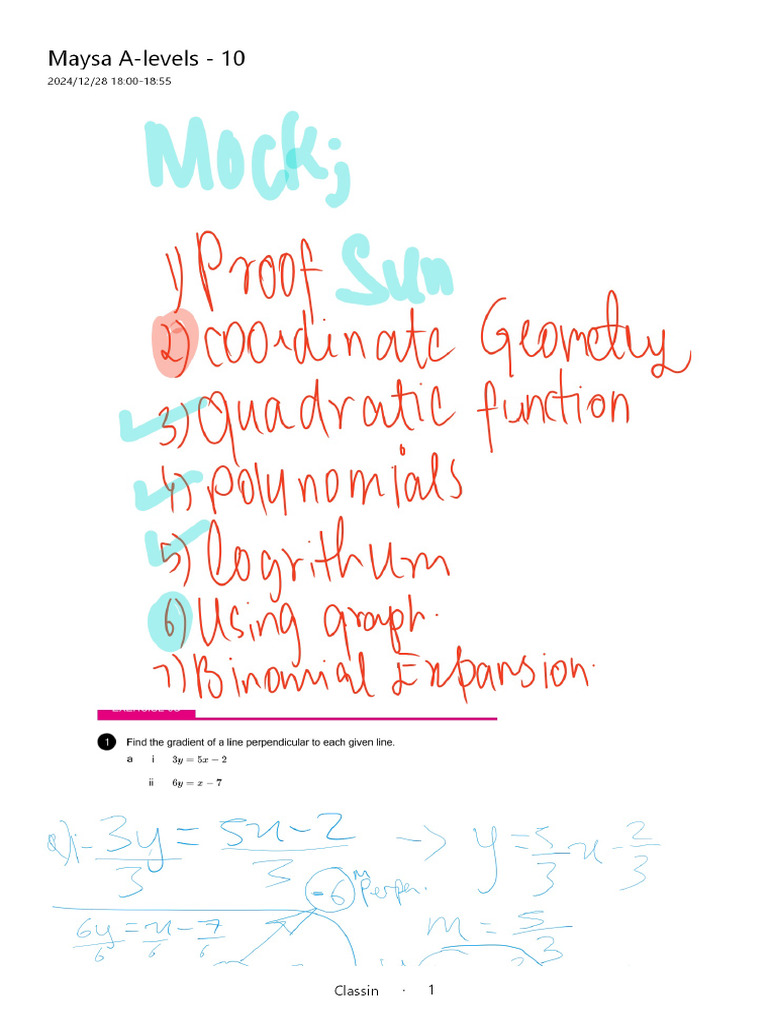 Maysa A-levels - 10
2024/12/28 18:00-18:55
Mock;
1) Proof Sun
2) coordinate Geometry
3) quadratic function
4) polynomials
5) logrithum
6) Using graph.
7) Binomial Expansion.
1 Find the gradient of a line perpendicular to each given line.
a i 3y = 5x − 2
ii 6y = x − 7
a)i- 3y/3 = 5x-2/3 -> y = 5/3 x - 2/3
-6 m perpen.
6y/6 = x/6 - 7/6
m = 5/3
Classin · 1